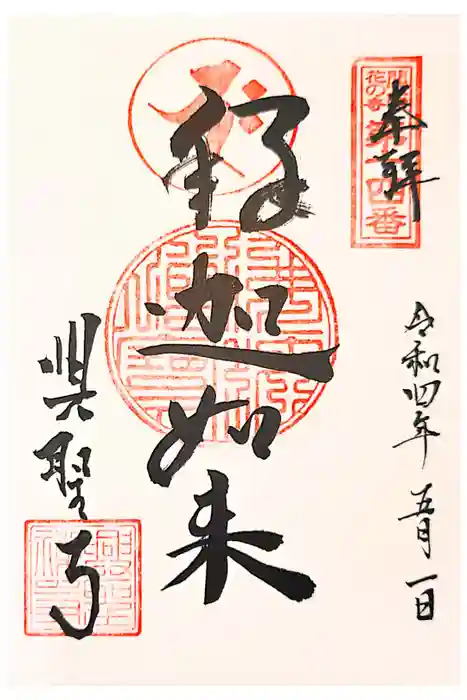 奉拝
花の寺
第十四番
令和四年 五月 一日
釈迦如来
興聖寺